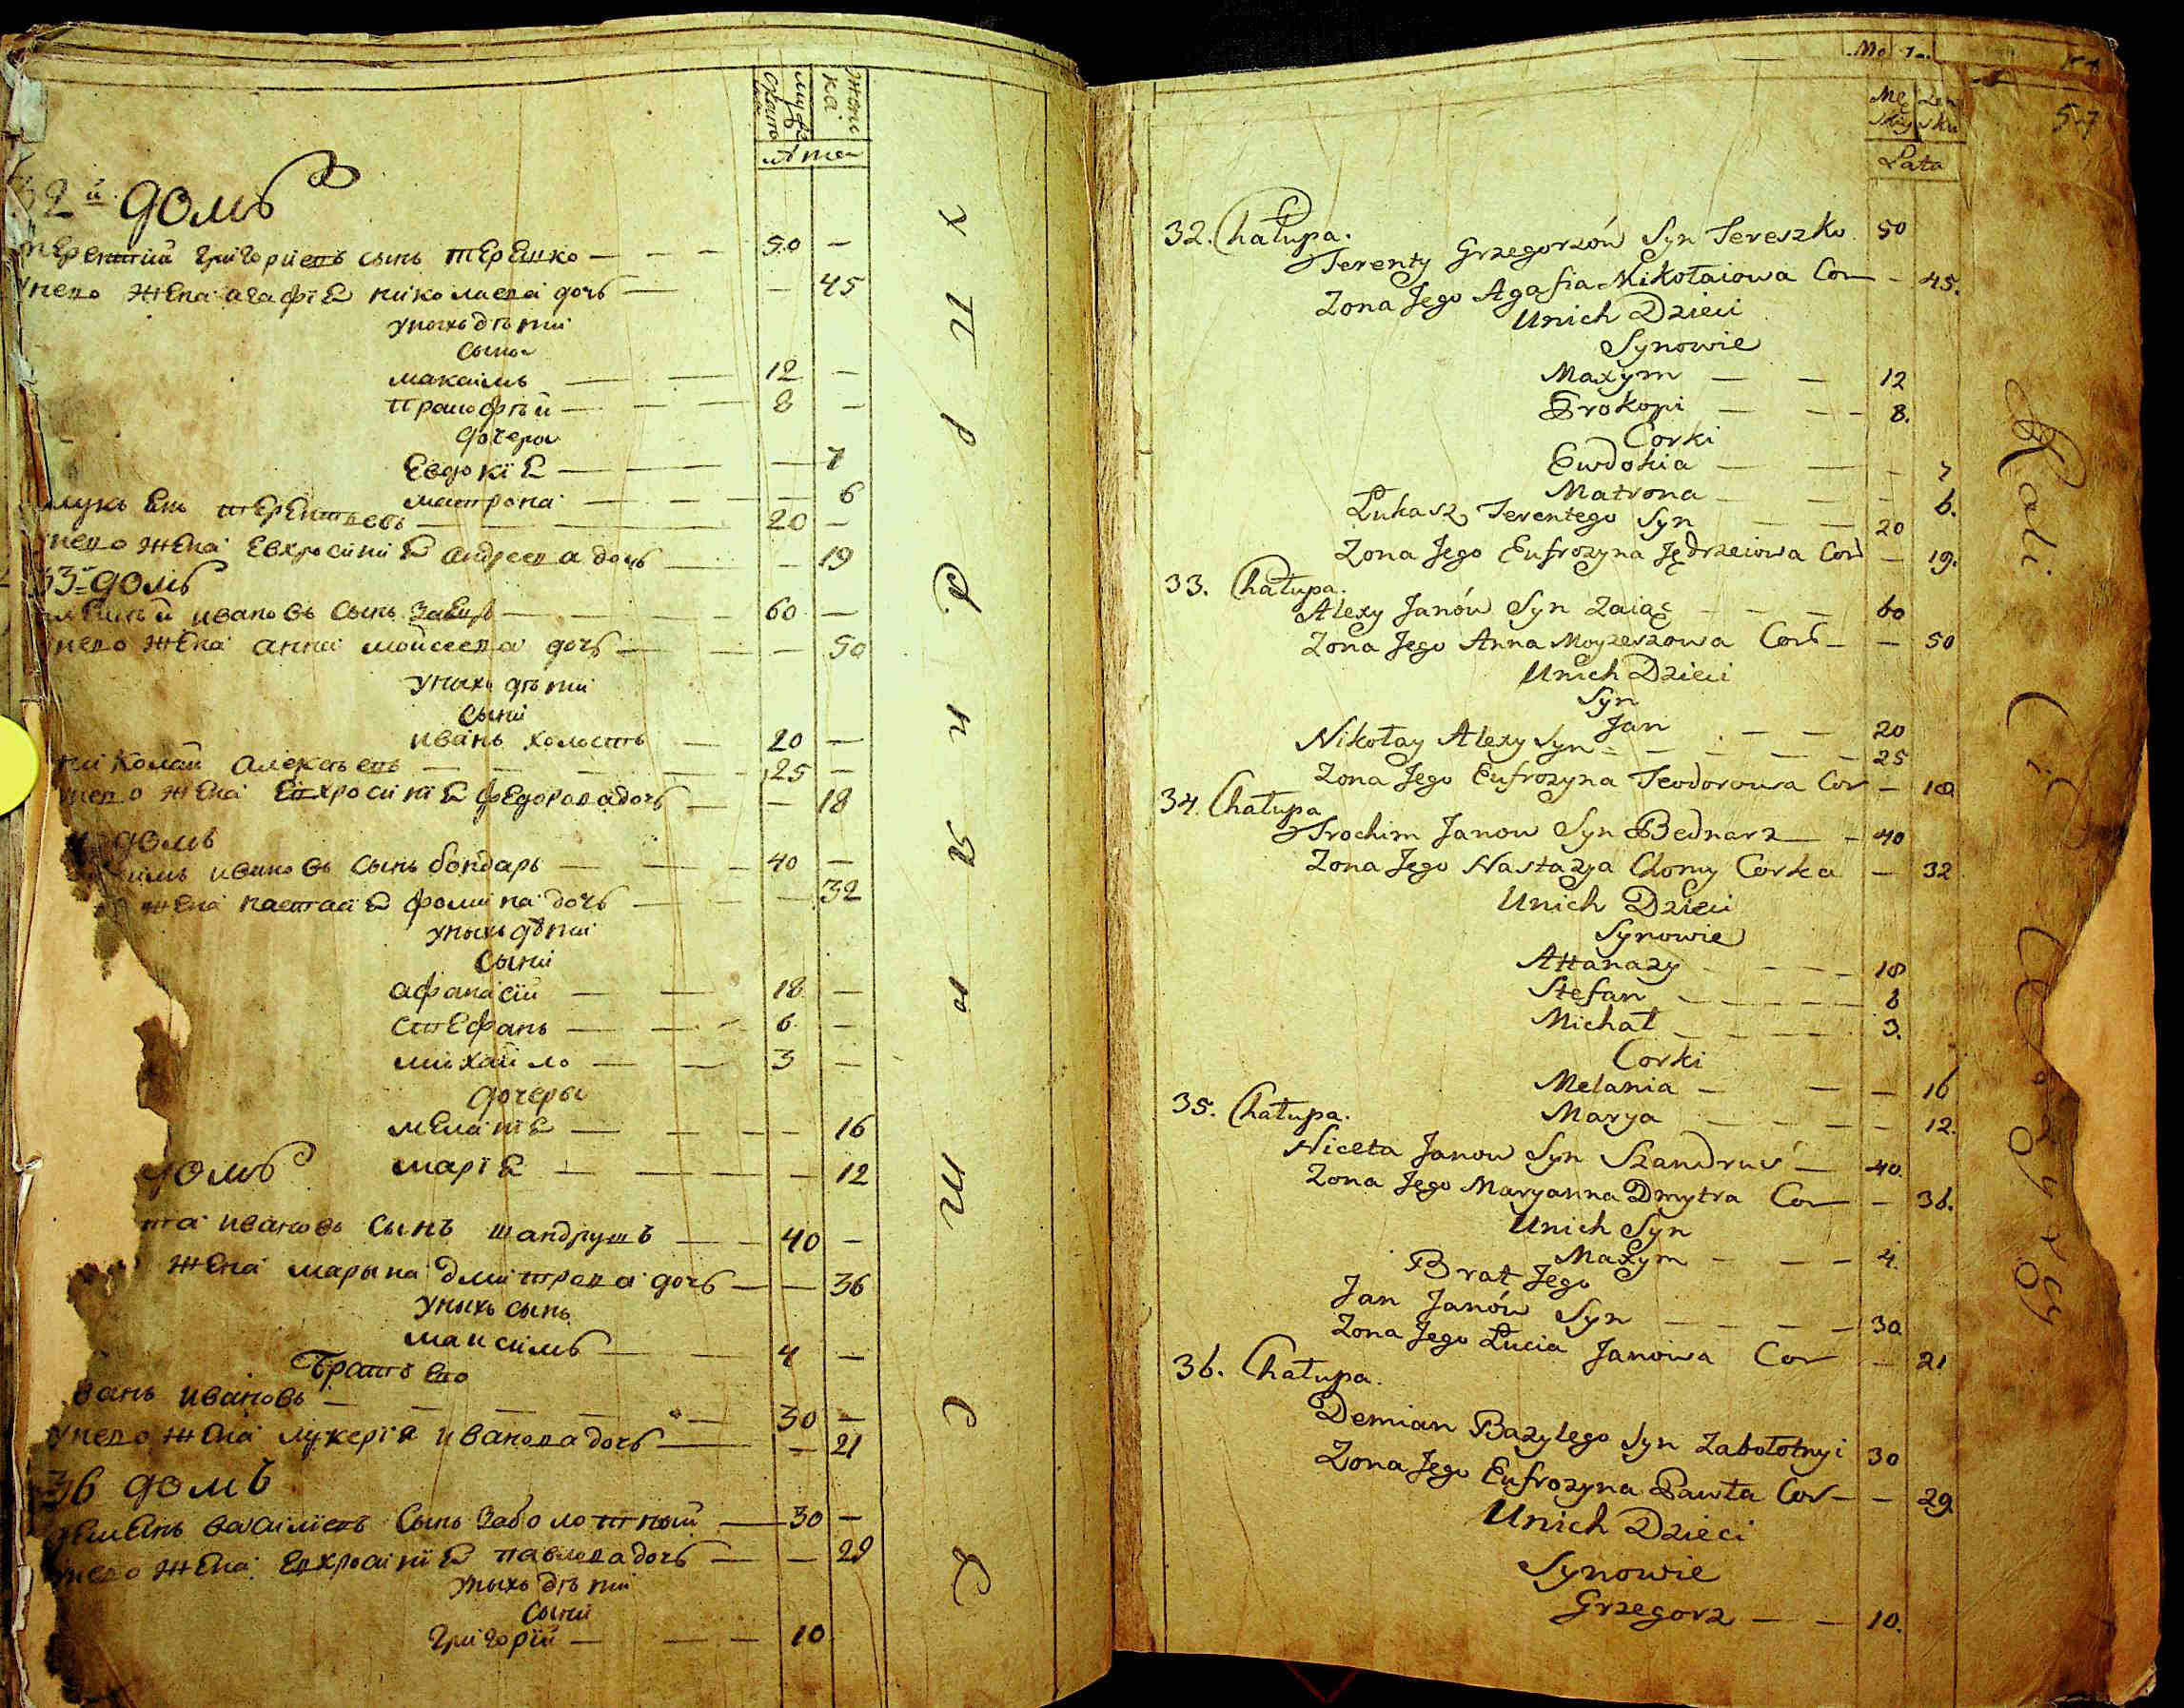 мужеска женска
лета
32й домъ
терентий григориевъ сынъ терешко — — — 50 —
унего жена агафїя николаева дочь — — 45
унихъ дѣти
сыны
максимъ — — 12 —
прокофѣй — — — 8 —
дочеры
Евдокїя — — — 7
матрона — — — — 6
терентьевъ — — 20 —
унего жена Евхросинїя андреева дочь — — 19
33 домъ
ивановъ сынъ заецъ — — — 60 —
унего жена анна мойсеева дочь — — — 50
унихъ дѣти
сыни
иванъ холостъ — 20 —
николай алексѣевъ — — — 25 —
унего жена Евхросинїя федорова дочь — — 18
домъ
ивановъ сынъ бондарь — — — 40 —
жена настасїя фомина дочь — — — 32
унихъ дѣти
сыни
афанасїй — — 18 —
стефанъ — — - 6 —
михайло — — 3 —
дочеры
меланїя — — — — 16
домъ
марїя — — — — 12
ивановъ сынъ шандрушъ — — 40 —
жена марына дмитрева дочь — — 36
унихъ сынъ
максимъ — — 4 —
Братъ его
ивановъ — — — — — 30 —
унего жена лукерїя иванова дочь — — 21
36 домъ
василїевъ сынъ заболотный — 30 —
унего жена Евхросинїя павлева дочь — — 29
унихъ дѣти
сыни
григорїй — — — 10
57
Męskiey Zenska
Lata
32. Chałupa.
Terenty Grzegorzów Syn Tereszko 50
Zona Jego Agafia Mikołaiowa Cor — 45.
Unich Dzieci
Synowie
Maxym — — 12
Prokopi — — - 8.
Corki
Ewdokia — — - 7
Matrona — — - 6.
Łukasz Terentego Syn — — 20
Zona Jego Eufrozyna Jędrzeiowa Cor — 19.
33. Chałupa.
Alexy Janów Syn Zaiąc — — — 60
Zona Jego Anna Moyzeszowa Cor — — 50
Unich Dzieci
Syn
Jan — — 20
Nikołay Alexy Syn — — — — 25
Zona Jego Eufrozyna Teodorowa Cor — 18
34. Chałupa
Trochim Janow Syn Bednarz — — 40
Zona Jego Nastazya Chomy Corka — 32
Unich Dzieci
Synowie
Attanazy — — — 18
Stefan — — — — 6
Michał — — — — 3.
Corki
Melania — — — 16
35. Chałupa.
Marya — — — — 12.
Niceta Janow Syn Szandruś — 40.
Zona Jego Maryanna Dmytra Cor — — 36.
Unich Syn
Maxym — — — 4.
Brat Jego
Jan Janów Syn — — — — 30
Zona Jego Łucia Janowa Cor — 21
36. Chałupa.
Demian Bazylego Syn Zabołotnyi 30
Zona Jego Eufrozyna Pawła Cor — — 29
Unich Dzieci
Synowie
Grzegorz — — 10.